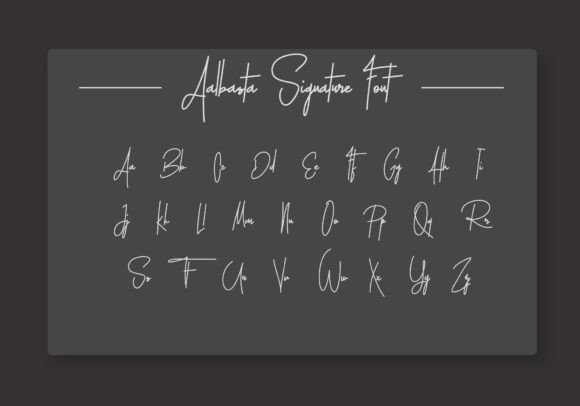 Aalbasta Signature Font
Aa Bb Cc Dd Ee Ff Gg Hh Ii
Jj Kk Ll Mm Nn Oo Pp Qq Rr
Ss Tt Uu Vv Ww Xx Yy Zz